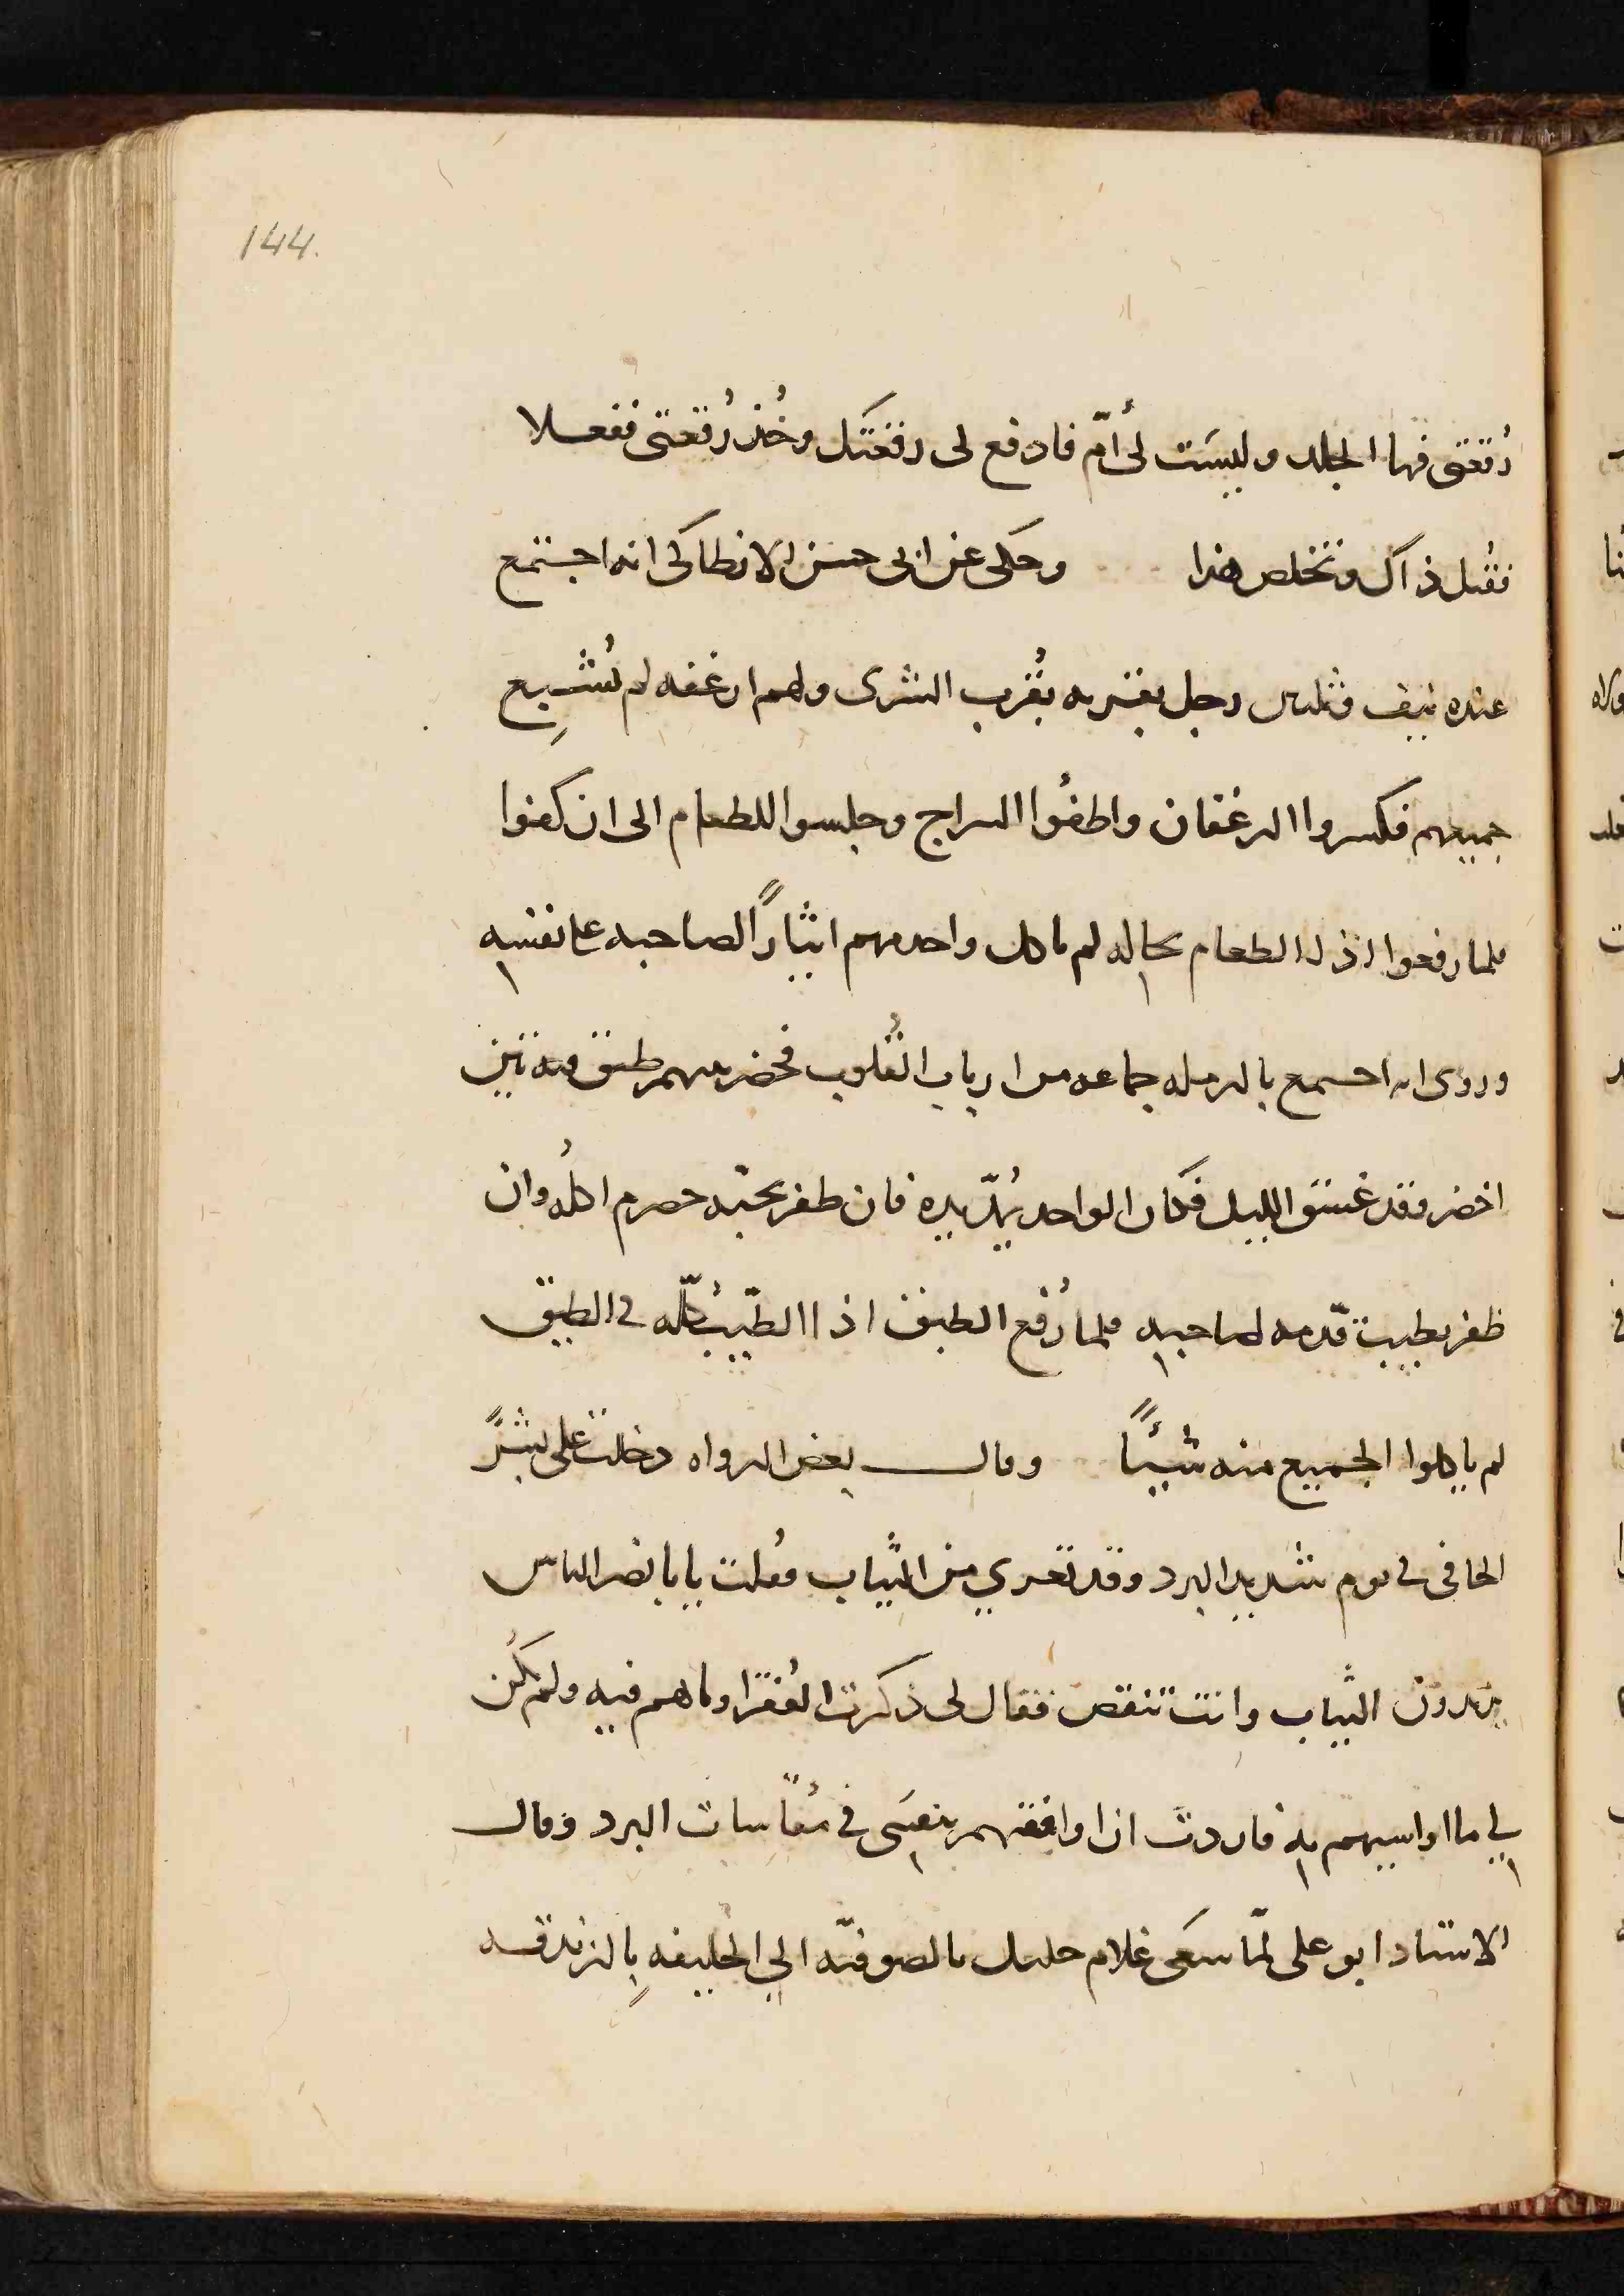 144.
رُقعتى فيها الجلد وليسَت لى أُمّ فادفع لى رقعتك وخُذ رُقعتى ففعلا
فقُتل ذاك وتخلص هذا وحكى عن ابى حسن الانطاكى انه اجتمع
عنده نيف وثلثين رجل بقريه بقُرب الشرى ولهم ارغفه لم تُشبِع
جميعهم فكسروا الرغفان واطفُوا السراج وجلسوا للطعام الى ان كفوا
فلما رفعوا اذ الطعام بحاله لم ياكل واحد منهم ايثارًا لصاحبه على نفسه
وروى انه اجتمع بالرمله جماعه من ارباب القُلوب فحضر بينهم طبق فيه تين
اخضر وقد غسق الليل فكان الواحد يُمدّ يده فان ظفر بحبّه حصرم اكلُه وان
ظفر بطيبة قدّمه لصاحبه فلما رُفع الطبق اذا الطيّب كُلّه فى الطبق
لم ياكلوا الجميع منه شيئًا وقال بعض الرواه دخلت على بشرً
الحافى فى يوم شديد البرد وقد تعري من الثياب فقُلت يابا نصر الناس
يزيدون الثياب وانت تنقص فقال لى ذكرت الفُقرا وما هم فيه ولم يكُن
لي ما اواسيهم به فاردت ان اوافقهم بنفسَى فى مُقاسات البرد وقال
الاستاد ابو على لمّا سعَى غلام خليل بالصوفيّه الي الخليفه بِالزندقه